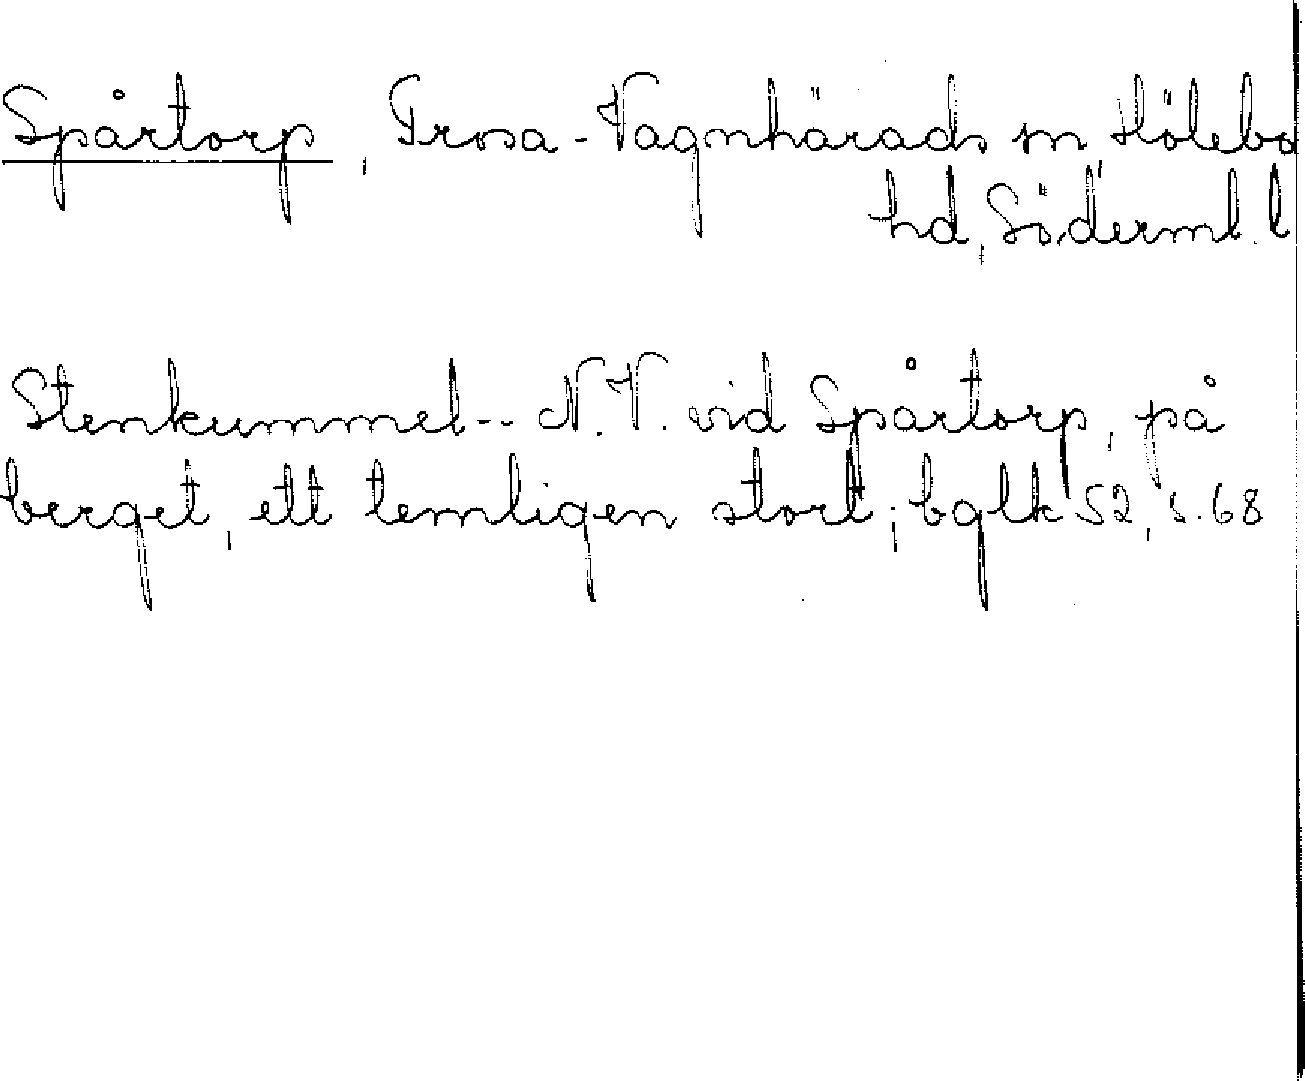 Spårtorp, Trosa-Vagnhärads sn Hölebo
hd, Söderml. l
Stenkummel-- N.V. vid Spårtorp, på
berget, ett temligen stort; bglk 52, s. 68